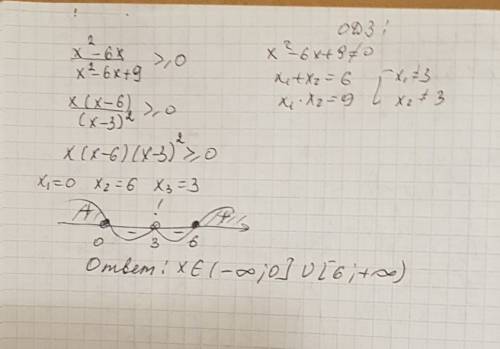 ОДЗ:
x² - 6x / x² - 6x + 9 ≥ 0
x² - 6x + 9 ≠ 0
x₁ + x₂ = 6
x₁ · x₂ = 9
x₁ ≠ 3
x₂ ≠ 3
x(x-6) / (x-3)² ≥ 0
x(x-6)(x-3)² ≥ 0
x₁=0 x₂=6 x₃=3
+ - ! - +
0 3 6
Ответ: x∈(-∞;0]∪[6;+∞)